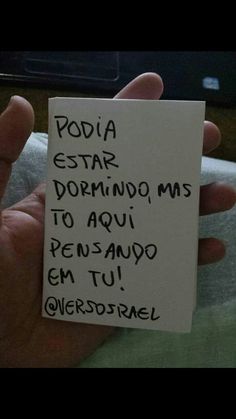 PODIA
ESTAR
DORMINDO, MAS
TO AQUI
PENSANDO
EM TU!
@VERSOSRAEL